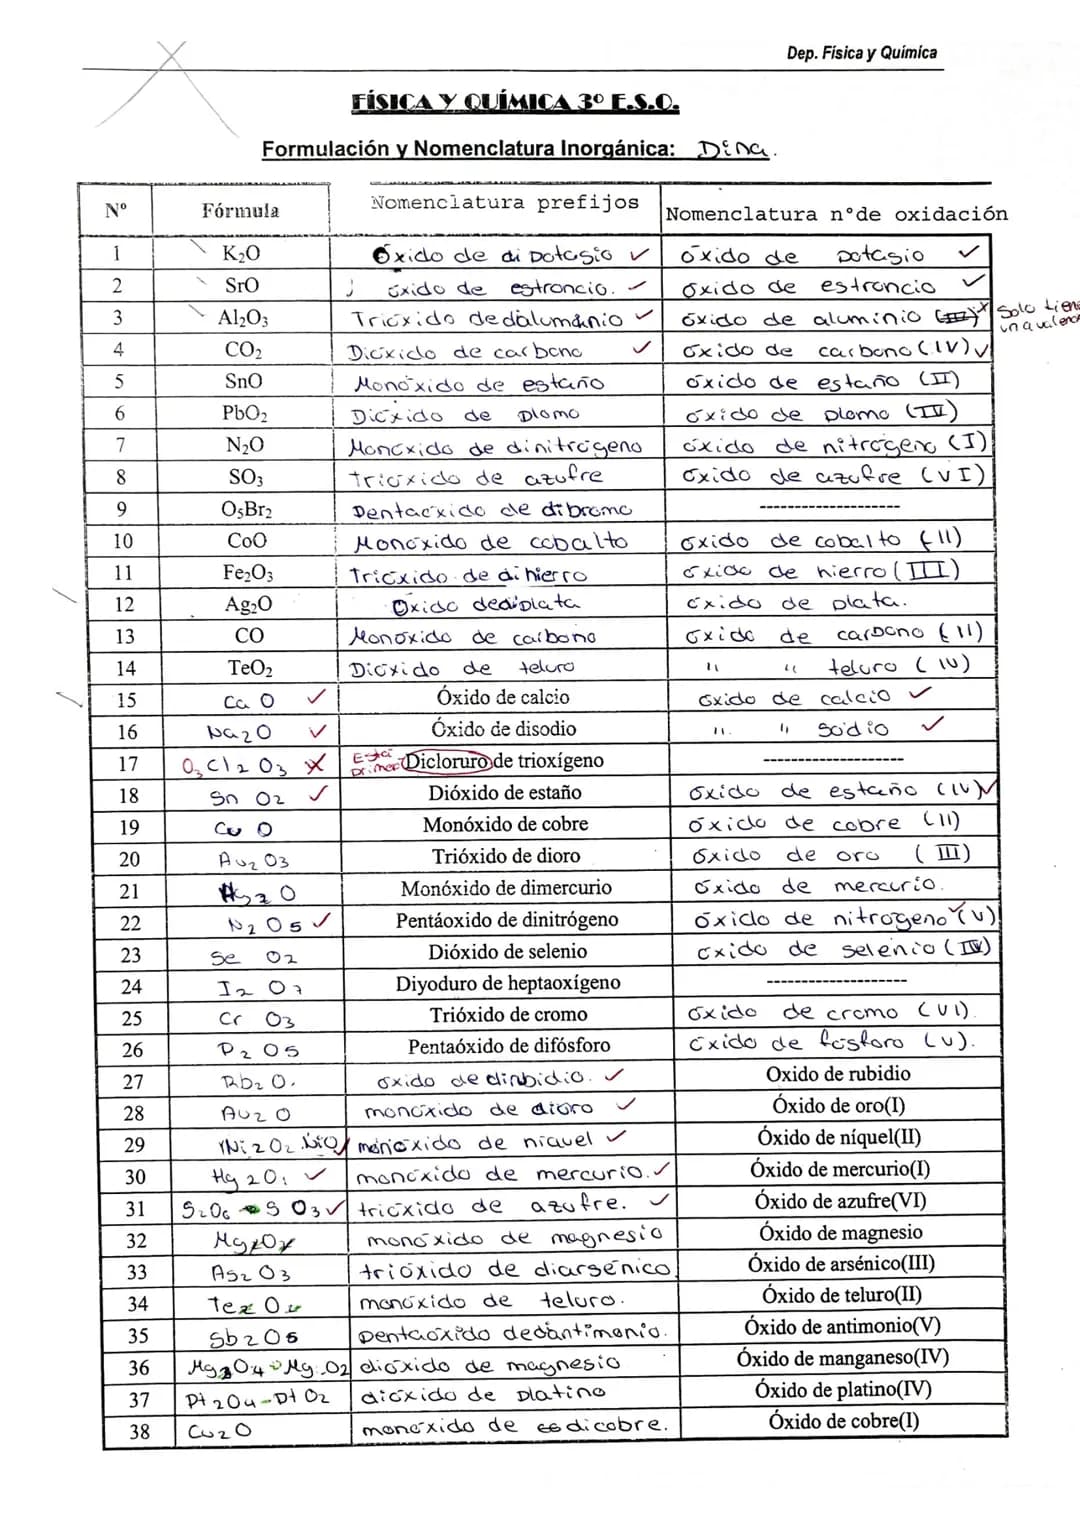 Dep. Física y Química
FÍSICA Y QUÍMICA 3º E.S.O.
Formulación y Nomenclatura Inorgánica: Dina.
Nº Fórmula Nomenclatura prefijos Nomenclatura nºde oxidación
1 K₂O Óxido de dipotasio ✓ óxido de potasio ✓
2 SrO óxido de estroncio. ✓ óxido de estroncio ✓
3 Al₂O₃ Trióxido de dalumánio ✓ óxido de aluminio (III) x Solo tiene una valencia
4 CO₂ Dióxido de carbono ✓ óxido de carbono (IV) ✓
5 SnO Monóxido de estaño óxido de estaño (II)
6 PbO₂ Dióxido de plomo óxido de plomo (IV)
7 N₂O Monóxido de dinitrógeno óxido de nitrógeno (I)
8 SO₃ trióxido de azufre óxido de azufre (VI)
9 O₅Br₂ Pentaóxido de dibromo --------------------
10 CoO Monóxido de cobalto óxido de cobalto (II)
11 Fe₂O₃ Trióxido de dihierro óxido de hierro (III)
12 Ag₂O Óxido de diplata óxido de plata.
13 CO Monóxido de carbono óxido de carbono (II)
14 TeO₂ Dióxido de teluro " " teluro (IV)
15 Ca O ✓ Óxido de calcio óxido de calcio ✓
16 Na₂O ✓ Óxido de disodio " " sódio ✓
17 O₃Cl₂ O₃ x Está primer Dicloruro de trioxígeno --------------------
18 Sn O₂ ✓ Dióxido de estaño óxido de estaño (IV) ✓
19 Cu O Monóxido de cobre óxido de cobre (II)
20 Au₂ O₃ Trióxido de dioro óxido de oro (III)
21 Hg₂ O Monóxido de dimercurio óxido de mercurio.
22 N₂ O₅ ✓ Pentáoxido de dinitrógeno óxido de nitrogeno (V)
23 Se O₂ Dióxido de selenio óxido de selenio (IV)
24 I₂ O₇ Diyoduro de heptaoxígeno --------------------
25 Cr O₃ Trióxido de cromo óxido de cromo (VI).
26 P₂ O₅ Pentaóxido de difósforo óxido de fosforo (V).
27 Rb₂ O. óxido de dirubidio. ✓ Oxido de rubidio
28 Au₂ O monóxido de dioro ✓ Óxido de oro(I)
29 Ni₂O₂ NiO monóxido de niquel ✓ Óxido de níquel(II)
30 Hg₂O. ✓ monóxido de mercurio. ✓ Óxido de mercurio(I)
31 S₂O₆ S O₃ ✓ trióxido de azufre. ✓ Óxido de azufre(VI)
32 Mg₂O₂ monóxido de magnesio Óxido de magnesio
33 As₂ O₃ trióxido de diarsénico Óxido de arsénico(III)
34 Te₂ O₂ monóxido de teluro. Óxido de teluro(II)
35 Sb₂O₅ pentaóxido dedantimonio. Óxido de antimonio(V)
36 Mg₂O₄ Mg O₂ dióxido de magnesio Óxido de manganeso(IV)
37 Pt₂O₄-Pt O₂ dióxido de platino Óxido de platino(IV)
38 Cu₂O monóxido de dicobre. Óxido de cobre(I)